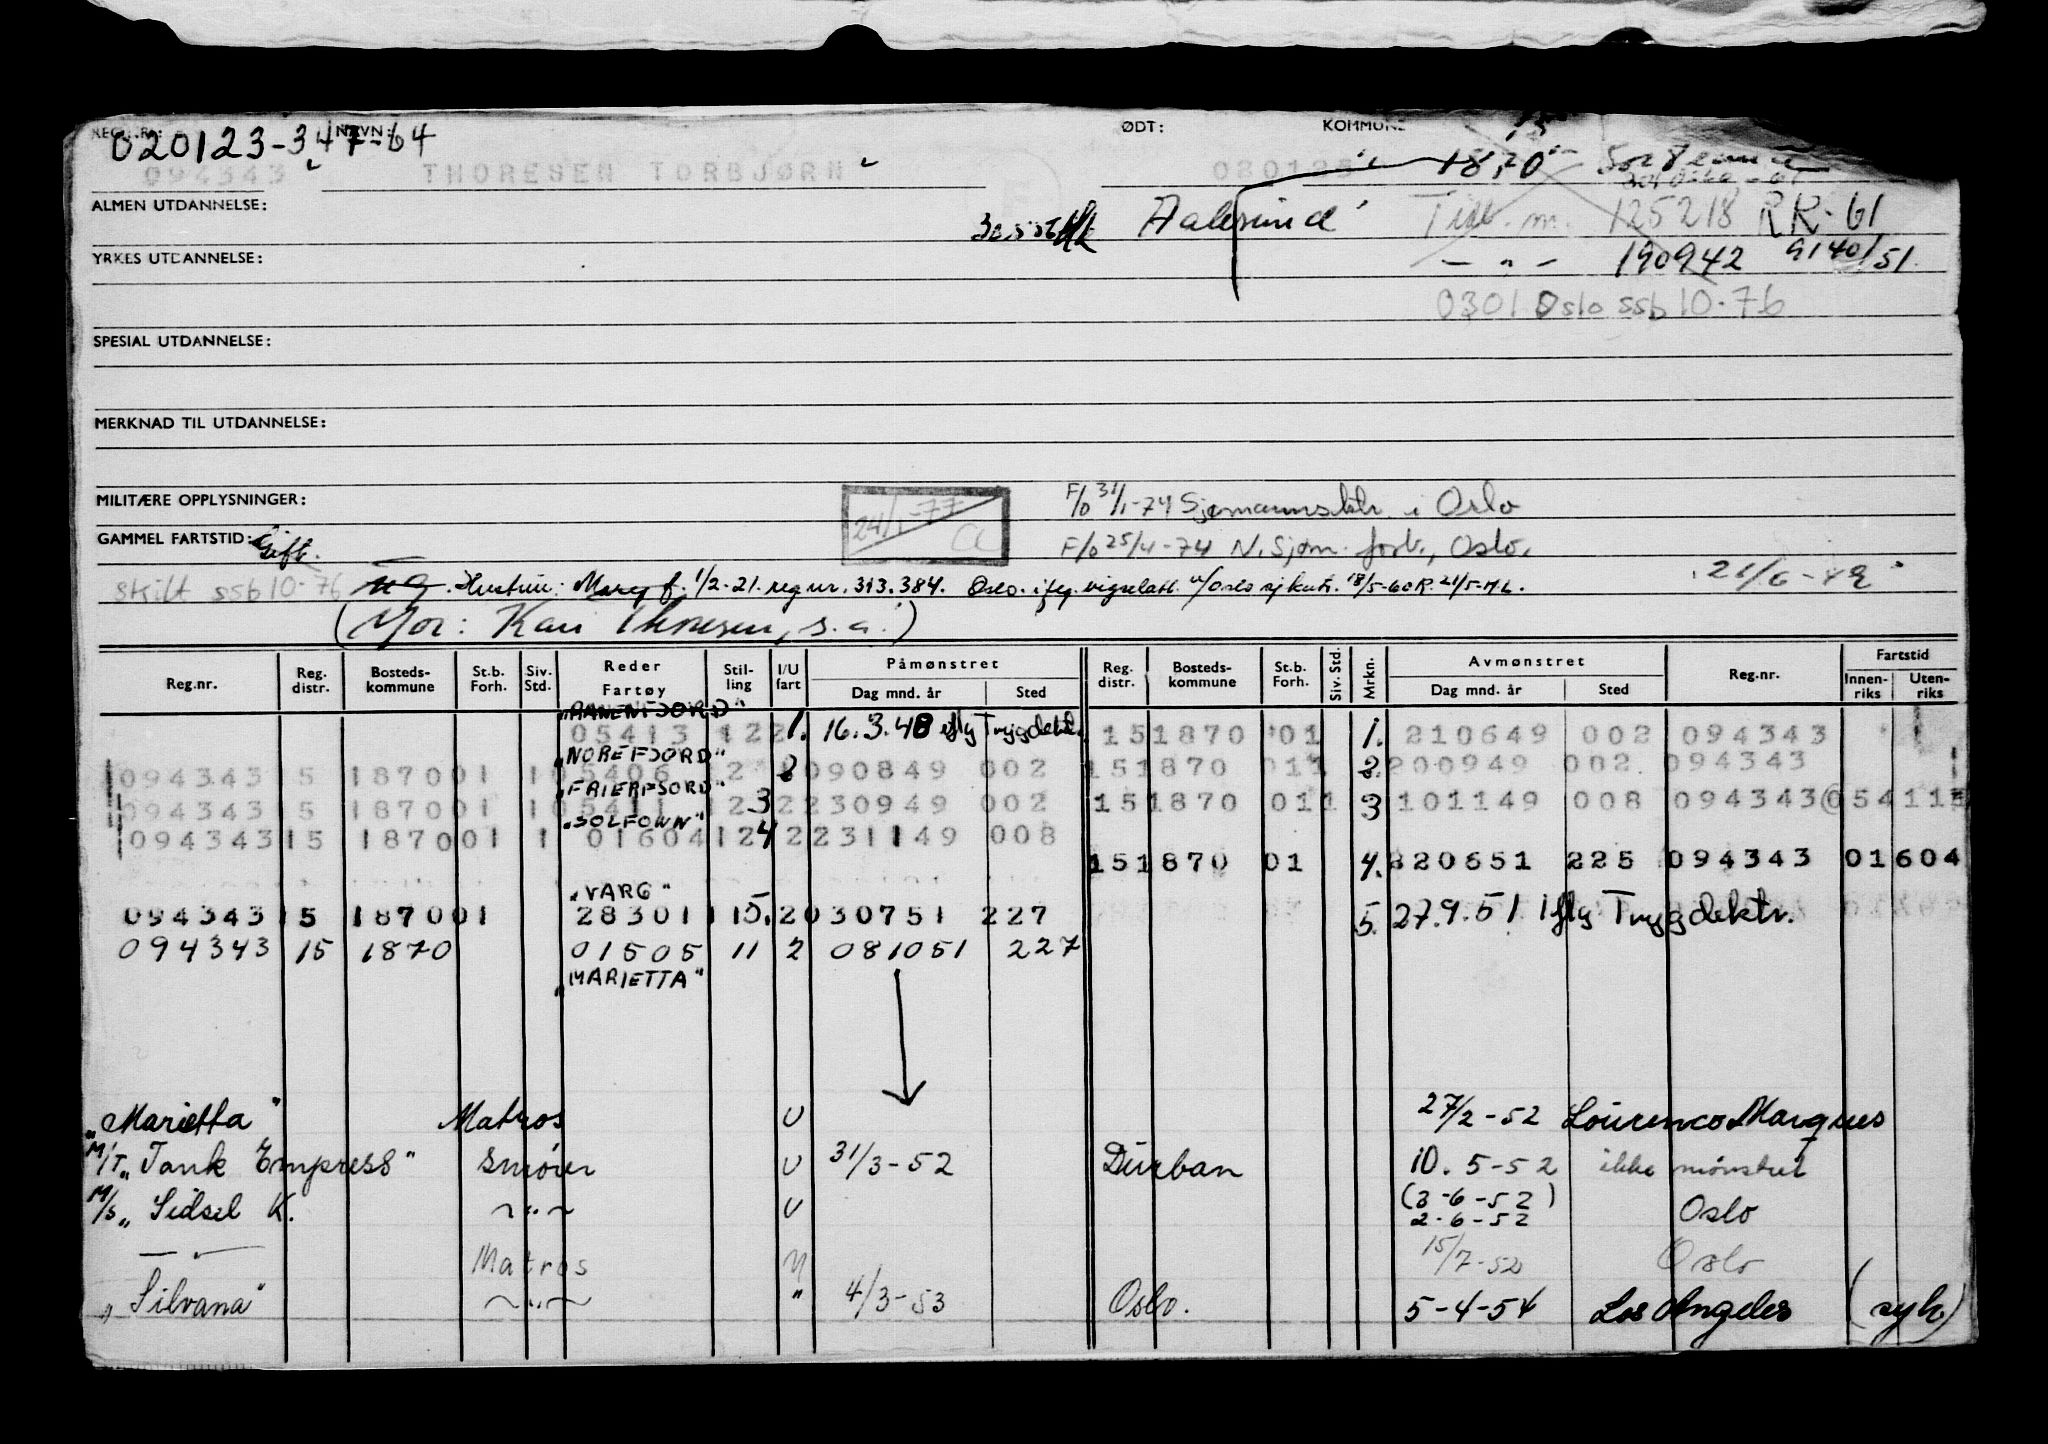 REG.NR.: NAVN: ØDT: KOMMUNE
020123-347-64
094343 THORESEN TORBJØRN 020123 1820
ALMEN UTDANNELSE:
Aalesund Tidl. m. 125218 RR-61
YRKES UTDANNELSE:
— " — 190942 9140/51
0301 Oslo ssb 10-76
SPESIAL UTDANNELSE:
MERKNAD TIL UTDANNELSE:
MILITÆRE OPPLYSNINGER:
24/1-77
F/o 31/1-74 Sjømannsktr. i Oslo
GAMMEL FARTSTID: Gift.
F/o 25/4-74 N. Sjøm. forb., Oslo.
skilt ssb 10-76 ug. Hustru: Mary f. 1/2-21. reg nr. 313.384. Oslo. iflg. vigselatt. v/Oslo sj.kontr. 18/5-60 R. 21/5-M.L.
21/6-49
(Mor: Kari Thoresen, s.a.)
Reg.nr. Reg. distr. Bosteds-kommune St.b. Forh. Siv. Std. Reder Fartøy Stil-ling I/U fart Påmønstret Dag mnd. år Sted Reg. distr. Bosteds-kommune St.b. Forh. Siv. Std. Mrkn. Avmønstret Dag mnd. år Sted Reg.nr. Fartstid Innen-riks Uten-riks
"RANENFJORD"
05413 122 1. 16.3.48 iflg Trygdektr. 151870 01 1. 210649 002 094343
"NOREFJORD"
094343 5 187001 1 05406 2 2 090849 002 151870 011 2. 200949 002 094343
"FRIERFJORD"
094343 5 187001 1 05411 12 3 2 230949 002 151870 011 3 101149 008 094343 05411
"SOLFONN"
094343 15 187001 1 01604 12 4 2 231149 008
151870 01 4. 220651 225 094343 01604
"VARG"
094343 15 187001 28301 1 15. 2 030751 227 5. 27.9.51 iflg Trygdektr.
094343 15 1870 01505 11 2 081051 227
"MARIETTA"
"Marietta" Matros U 27/2-52 Lourenco Marques
M/T "Tank Empress" Smører U 31/3-52 Durban 10. 5-52 ikke mønstret
M/S "Sidsel K. ~"~ U (3-6-52) 2-6-52 Oslo
— " — Matros U 15/7-52 Oslo
"Silvana" ~"~ " 4/3-53 Oslo. 5-4-54 Los Angeles (syk)